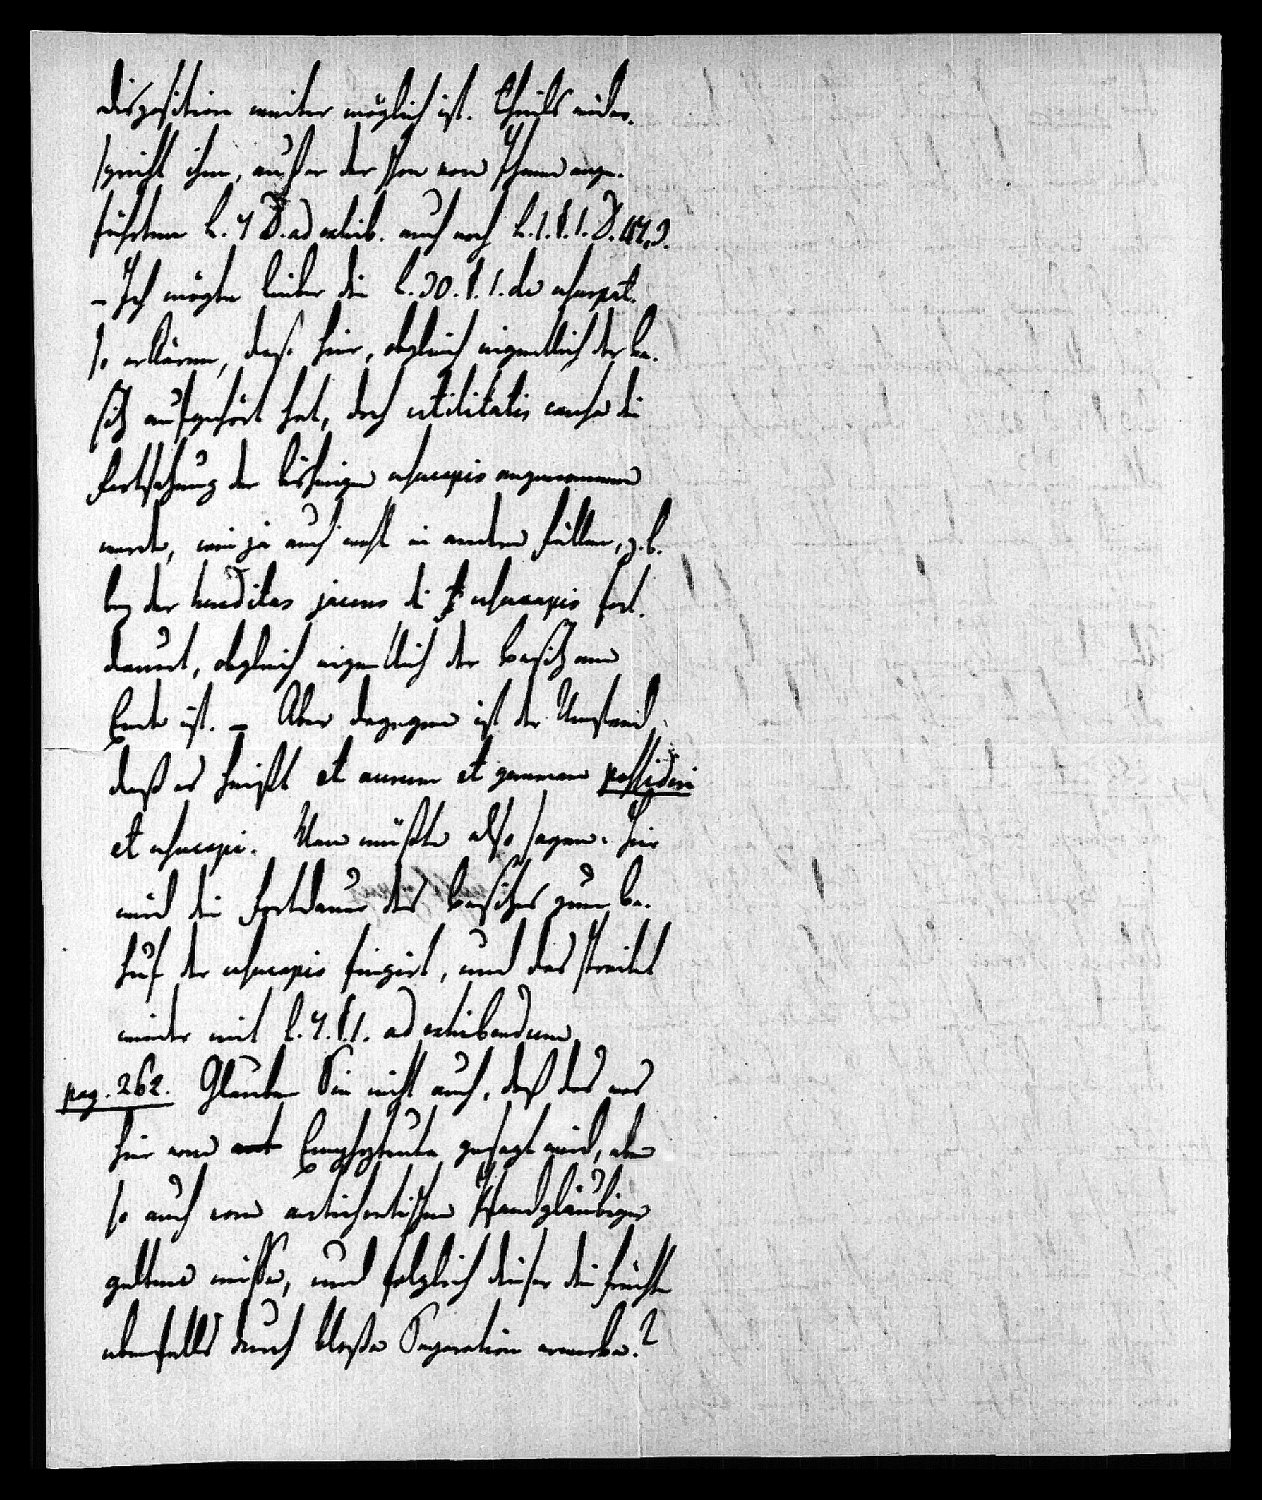 disposition weiter möglich ist. Theils wider-
spricht ihm, außer der schon von Ihnen ange-
führten L. 7 D. ad exhib. auch noch L. 1. §. 1. D. 47, 3.
– Ich mögte lieber die l. 30. §. 1. de usurpat.
so erklären, daß hier, obgleich eigentlich der Be-
sitz aufgehört hat, doch utilitatis causa die
Fortsetzung der bisherigen usucapio angenommen
werde, wie ja auch wohl in andern Fällen, z. b.
bey der hereditas jacens die usucapio fort-
dauert, obgleich eigentlich der Besitz am
Ende ist. – Aber dagegen ist der Umstand,
daß es heißt et aurum et gemmam possideri
et usucapi. Man müßte also sagen: hier
wird die Fortdauer des Besitzes zum Be-
huf der usucapio fingirt, und das streitet
wieder mit l. 7. §. 1. ad exhibendum.
pag. 262. Glauben Sie nicht auch, daß das was
hier vom Emphyteuta gesagt wird, eben
so auch vom antichretischen Pfandgläubiger
gelten müsse, und folglich dieser die Früchte
ebenfalls durch bloße Separation erwerbe?